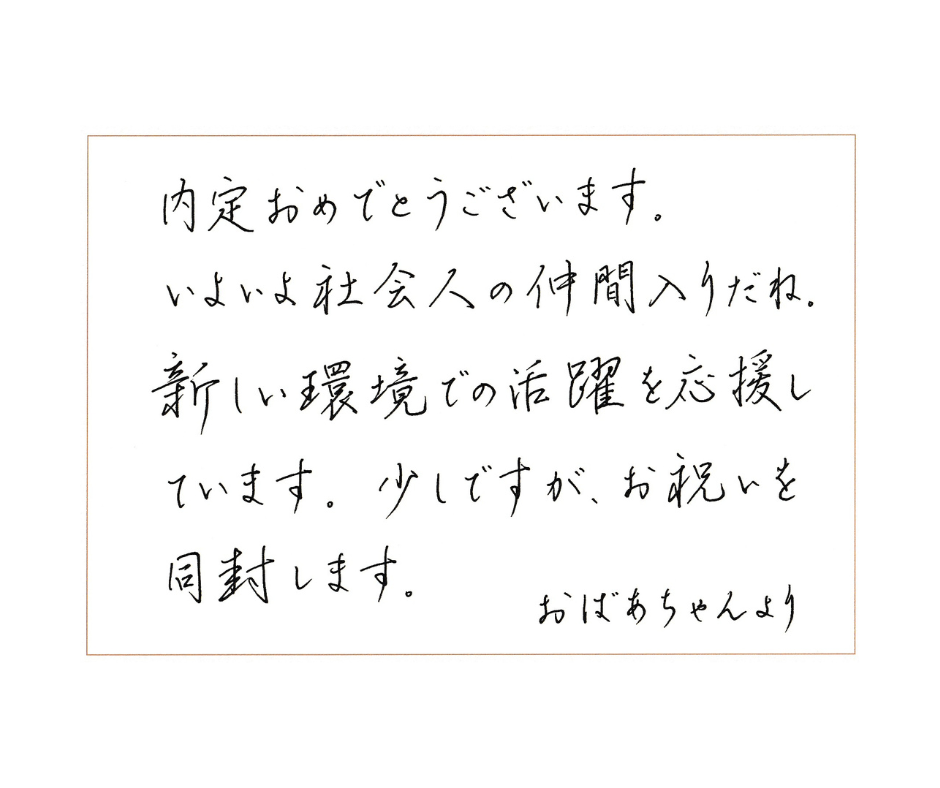 内定おめでとうございます。
いよいよ社会人の仲間入りだね。
新しい環境での活躍を応援し
ています。少しですが、お祝いを
同封します。
おばあちゃんより